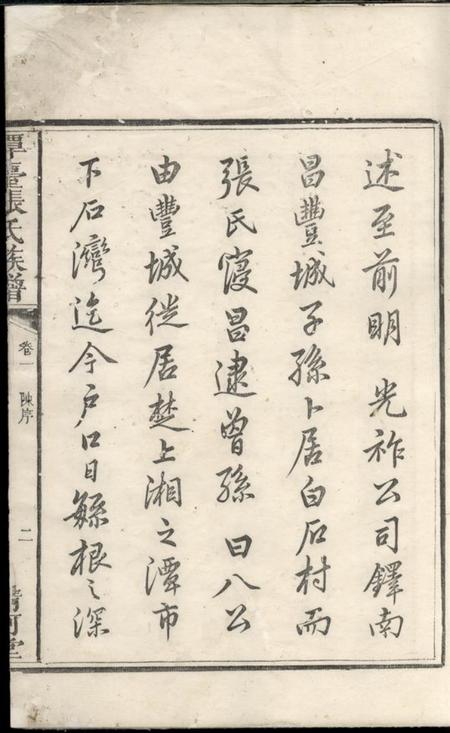 述至前明 光祚公司鐸南
昌豐城子孫卜居白石村而
張氏寖昌逮曾孫 日八公
由豐城徙居楚上湘之潭市
下石灣迄今戶口日繇根之深
潭臺張氏族譜
卷一 陳序
二
清河堂